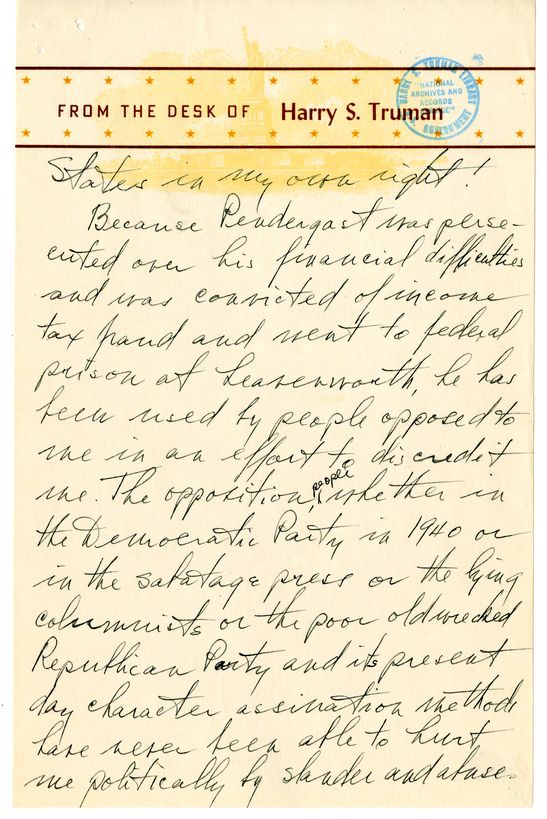 FROM THE DESK OF Harry S. Truman
HARRY S. TRUMAN LIBRARY
NATIONAL
ARCHIVES AND
RECORDS
SERVICE
U.S. GOVERNMENT
States in my own right!
Because Pendergast was perse-
cuted over his financial difficulties
and was convicted of income
tax fraud and went to federal
prison at Leavenworth, he has
been used by people opposed to
me in an effort to discredit
me. The opposition people, whether in
the Democratic Party in 1940 or
in the sabatage press or the lying
columnists or the poor old wrecked
Republican Party and its present
day character assination methods
have never been able to hurt
me politically by slander and abuse.